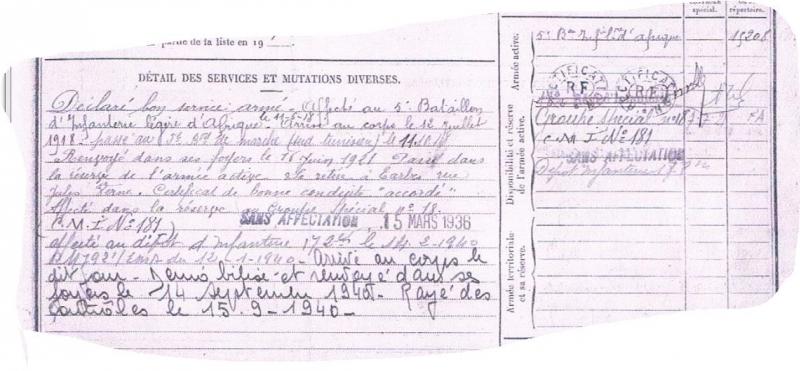 partie de la liste en 19
DÉTAIL DES SERVICES ET MUTATIONS DIVERSES.
Déclaré bon service armé. Affecté au 5e Bataillon
d'Infanterie légère d'Afrique le 11-6-18. Arrivé au corps le 12 juillet
1918. passé au de marche (sud tunisien) le 11.10.18
Renvoyé dans ses foyers le 16 juin 1921 Passé dans
la réserve de l'armée active. Se retire à rue
Jules Certificat de bonne conduite "accordé"
Affecté dans la réserve au Groupe Spécial n° 18.
(C.M.I. N° 181) SANS AFFECTATION 15 MARS 1936
affecté au dépôt d'Infanterie 172 le 14-2-1940
du 12-1-1940. Arrivé au corps le
dit jour. Démobilisé et renvoyé dans ses
foyers le 14 septembre 1940. Rayé des
contrôles le 15.9-1940-
spécial.
répertoire.
Armée active.
5e Bon Inf. lre d'Afrique
15208
RECTIFICATI
R.F.
RECTIFICATI
R.F.
Disponibilité et réserve
de l'armée active.
Groupe Spécial n° 18
C.M.I. N° 181
SANS AFFECTATION
Dépôt Infanterie
Armée territoriale
et sa réserve.